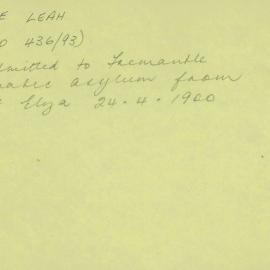 E LEAH
O 436/93)
dmitted to Fremantle
natic asylum from
Eliza 24.4.1900